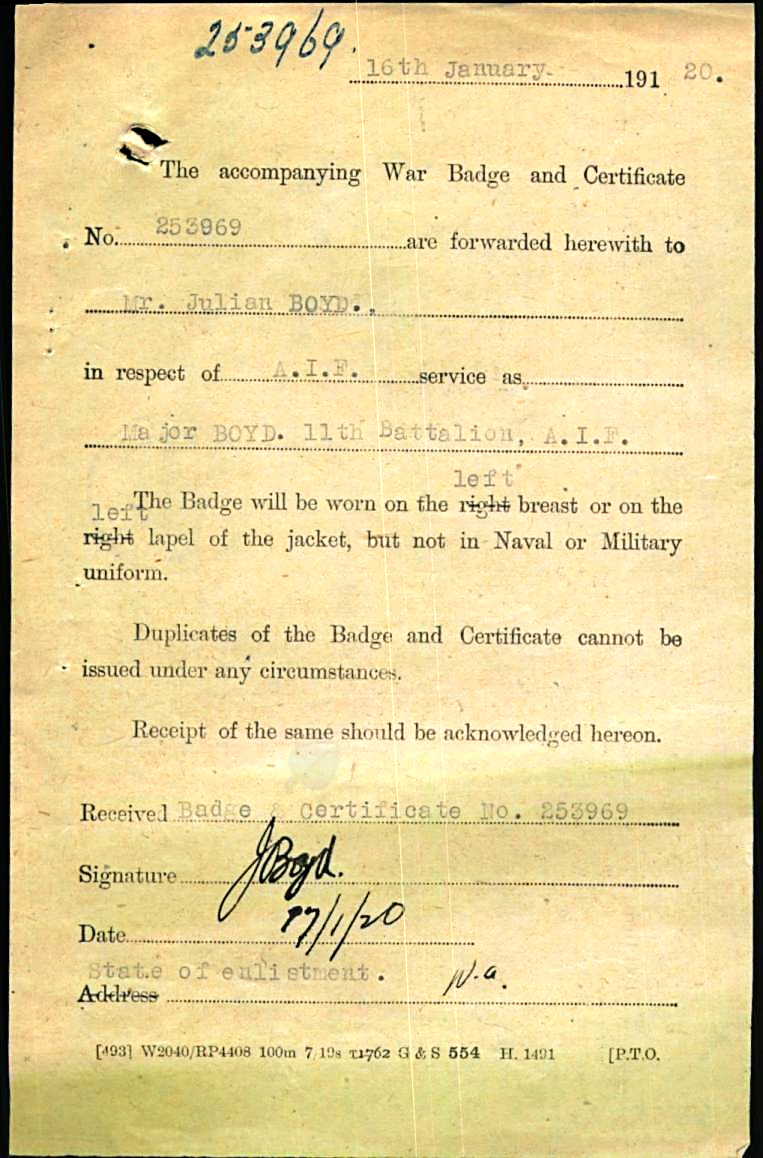 253969.
16th January. 191 20.
The accompanying War Badge and Certificate
No. 253969 are forwarded herewith to
Mr. Julian BOYD.,
in respect of A.I.F. service as
Major BOYD. 11th Battalion, A.I.F.
left
The Badge will be worn on the right breast or on the
left
right lapel of the jacket, but not in Naval or Military
uniform.
Duplicates of the Badge and Certificate cannot be
issued under any circumstances.
Receipt of the same should be acknowledged hereon.
Received Badge & Certificate No. 253969
Signature JBoyd.
Date 17/1/20
State of enlistment. W.a.
Address
[493] W2040/RP4408 100m 7/19s 11762 G & S 554 H. 1491 [P.T.O.